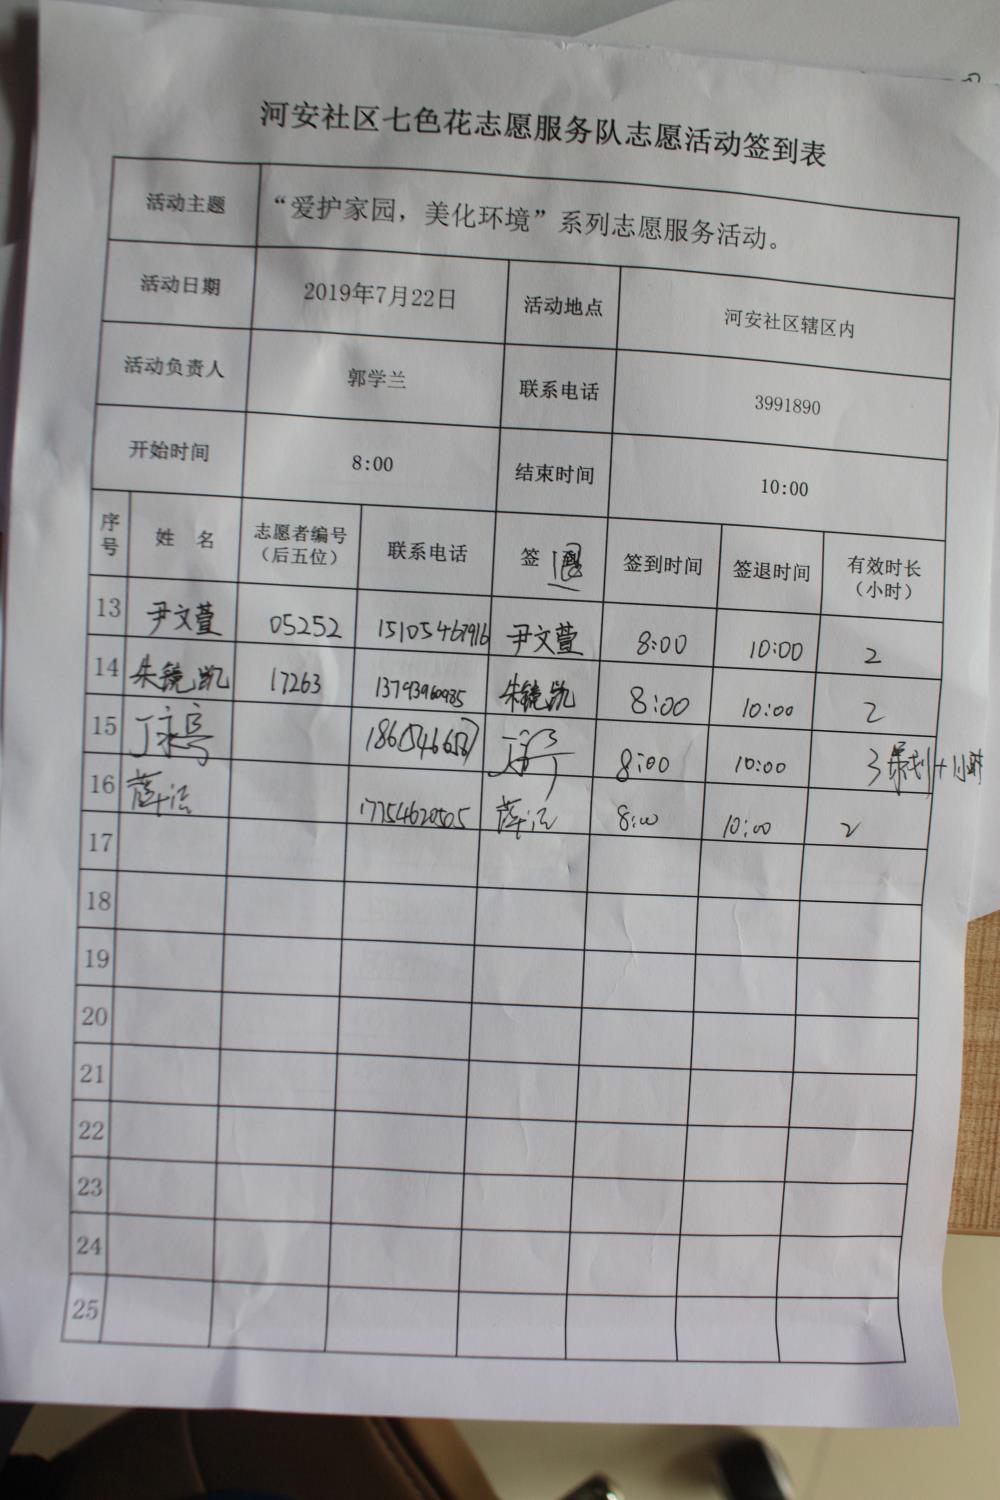 河安社区七色花志愿服务队志愿活动签到表
活动主题 “爱护家园，美化环境”系列志愿服务活动。
活动日期 2019年7月22日 活动地点 河安社区辖区内
活动负责人 郭学兰 联系电话 3991890
开始时间 8:00 结束时间 10:00
序号 姓 名 志愿者编号（后五位） 联系电话 签 签到时间 签退时间 有效时长（小时）
13 尹文萱 05252 15105467916 尹文萱 8:00 10:00 2
14 朱镜凯 17263 13793960985 朱镜凯 8:00 10:00 2
15 8:00 10:00 3 策划+1小时
16 薛洁 17754620505 薛洁 8:00 10:00 2
17
18
19
20
21
22
23
24
25